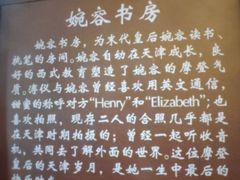 婉容书房
婉容书房，为末代皇后婉容读书、
执笔的房间。婉容自幼在天津成长，良
好的西式教育塑造了婉容的摩登气
质。溥仪与婉容曾经喜欢用英文通信，
甜蜜的称呼对方“Henry”和“Elizabeth”；也
喜欢拍照，现存二人的合照几乎都是
在天津时期拍摄的；曾经一起听收音
机，共同去了解外面的世界。这位摩登
皇后的天津岁月，是她一生中最后的